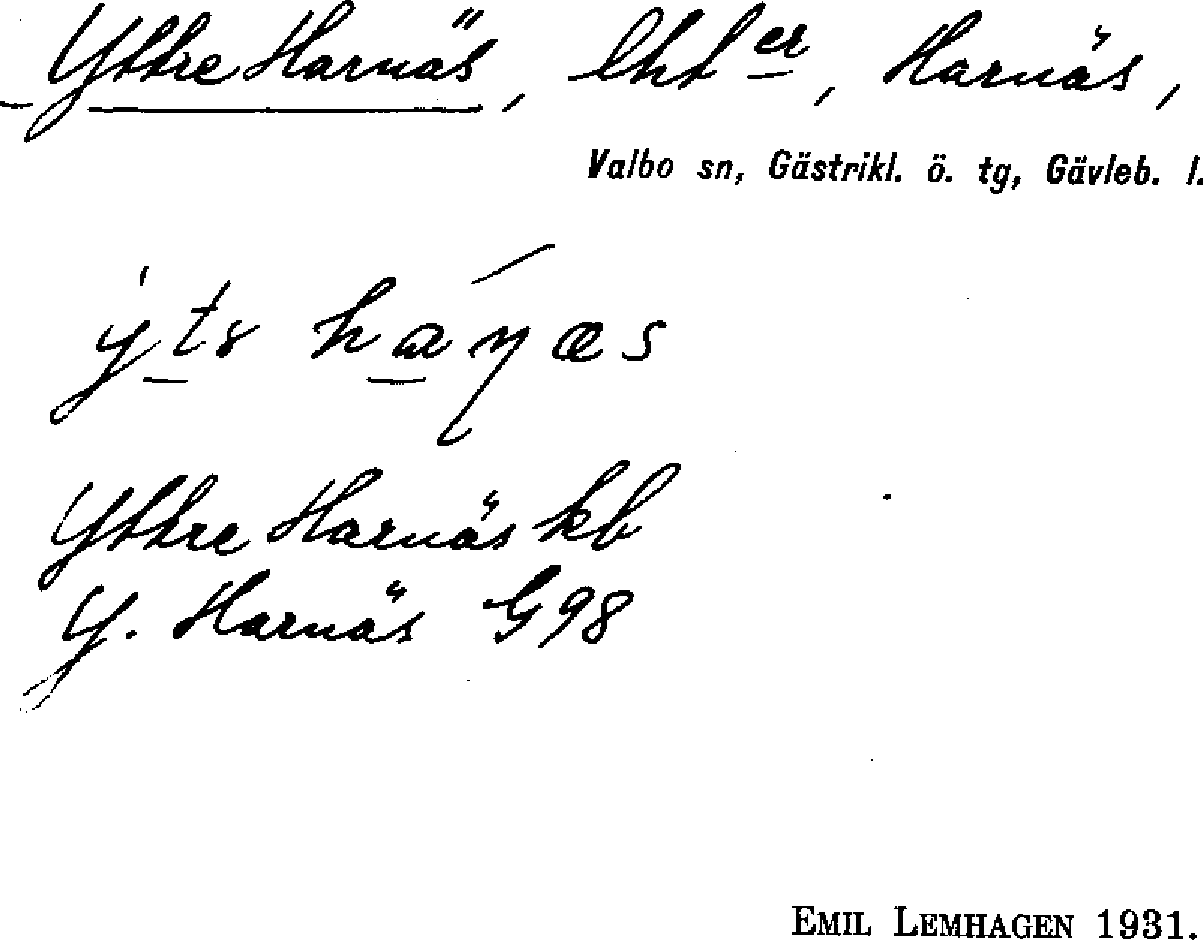 Yttre Harnäs, lht er, Harnäs,
Valbo sn, Gästrikl. ö. tg, Gävleb. l.
Yttre Harnäs kb
Y. Harnäs G98
EMIL LEMHAGEN 1931.